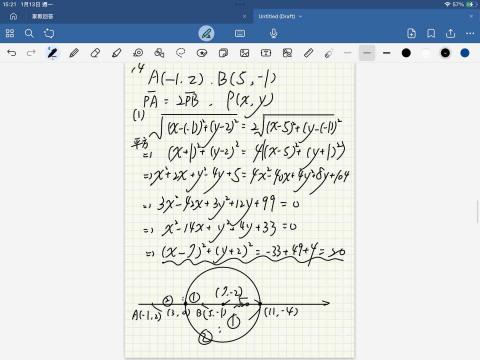 15:21 1月13日 週一
57%
家教回答
Untitled (Draft)
A(-1,2) . B(5,-1)
PA = 2PB . P(x,y)
(1)
√(x-(-1))²+(y-2)² = 2√(x-5)²+(y-(-1))²
平方
⇒ (x+1)²+(y-2)² = 4((x-5)²+(y+1)²)
⇒ x²+2x+y²-4y+5 = 4x²-40x+4y²+8y+104
⇒ 3x²-42x+3y²+12y+99 = 0
⇒ x²-14x+y²+4y+33 = 0
⇒ (x-7)²+(y+2)² = -33+49+4 = 20
② : ① (7,-2)
A(-1,2) (3,0) B(5,-1) (11,-4)
② : ①